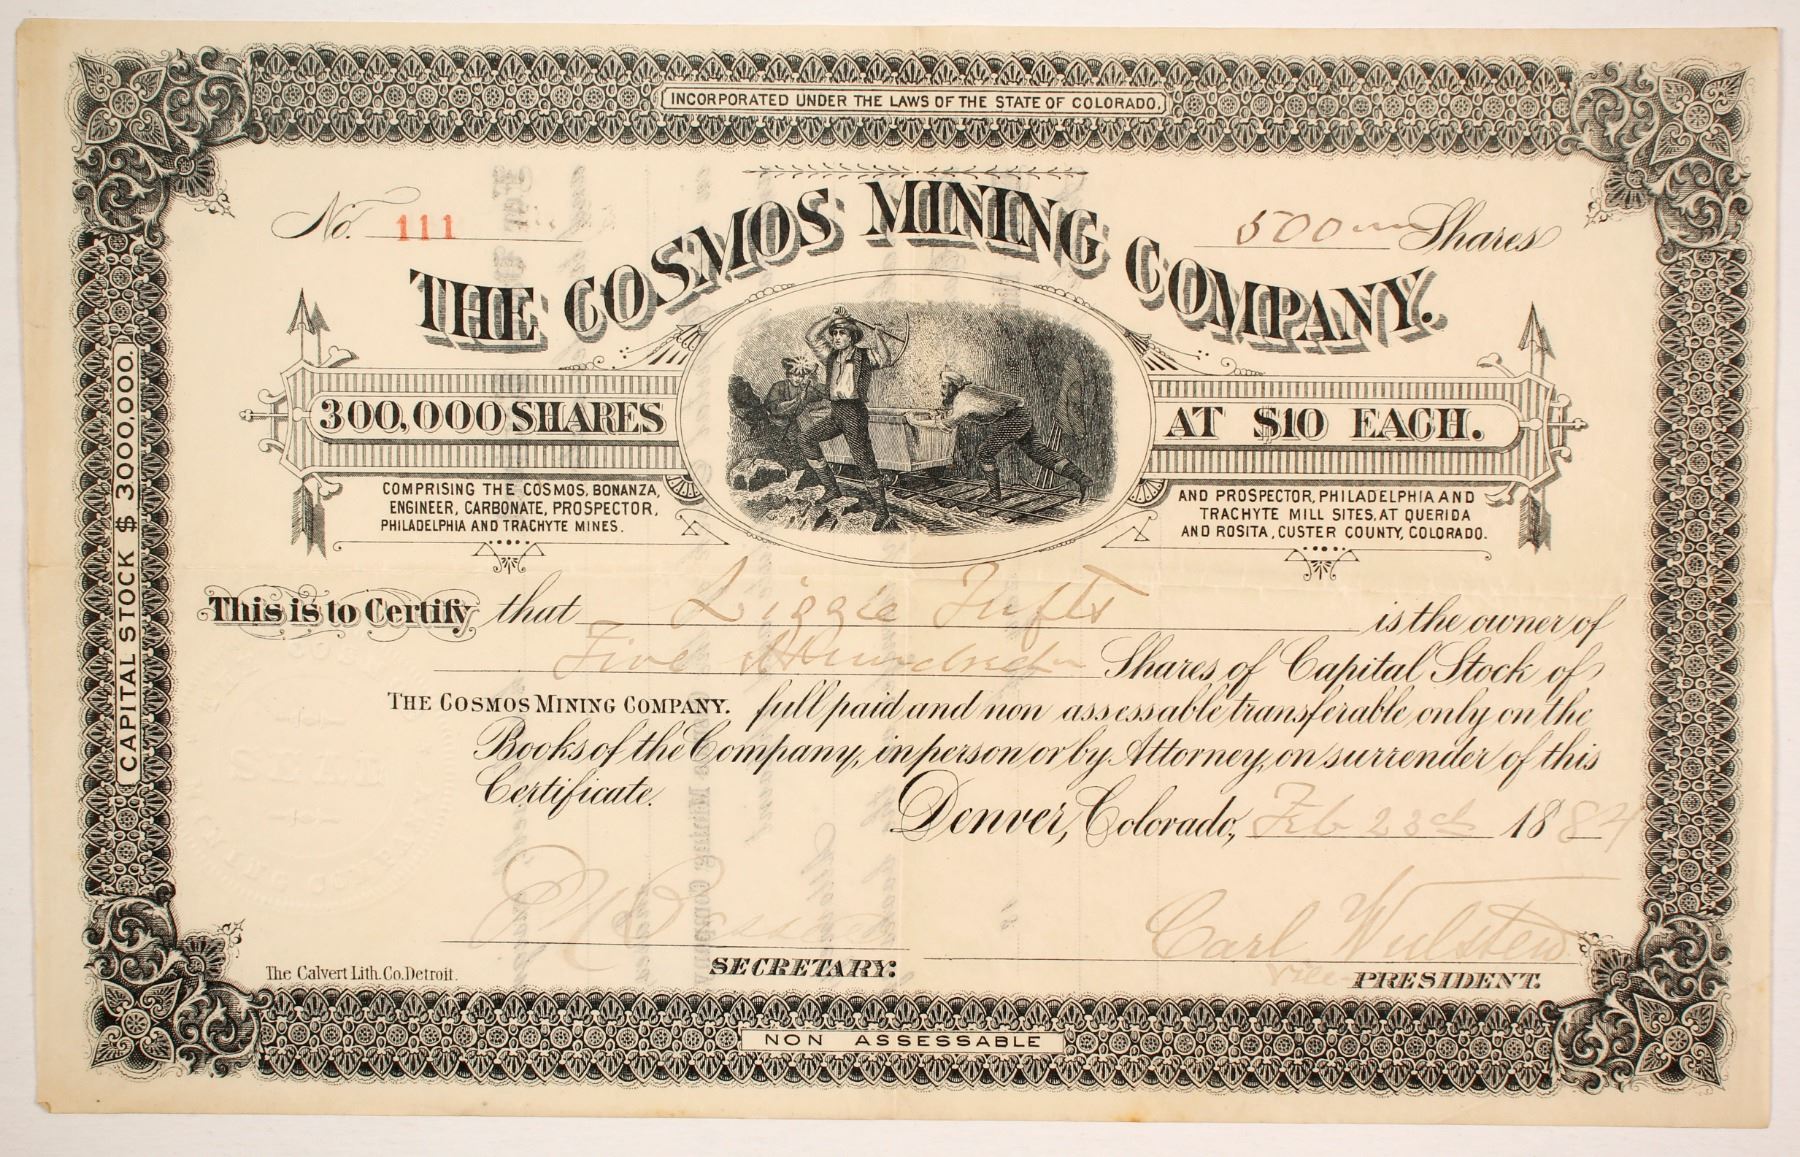 INCORPORATED UNDER THE LAWS OF THE STATE OF COLORADO.
No. 111
500 Shares
THE COSMOS MINING COMPANY.
300,000 SHARES AT $10 EACH.
COMPRISING THE COSMOS, BONANZA,
ENGINEER, CARBONATE, PROSPECTOR,
PHILADELPHIA AND TRACHYTE MINES.
AND PROSPECTOR, PHILADELPHIA AND
TRACHYTE MILL SITES, AT QUERIDA
AND ROSITA, CUSTER COUNTY, COLORADO.
CAPITAL STOCK $ 3000,000.
This is to Certify that Lizzie Tufts is the owner of
Five Hundred Shares of Capital Stock of
THE COSMOS MINING COMPANY. full paid and non assessable transferable only on the
Books of the Company, in person or by Attorney, on surrender of this
Certificate.
Denver, Colorado, Feb 23d 1884
Carl Wulsten
SECRETARY.
Vice PRESIDENT.
The Calvert Lith. Co. Detroit.
NON ASSESSABLE